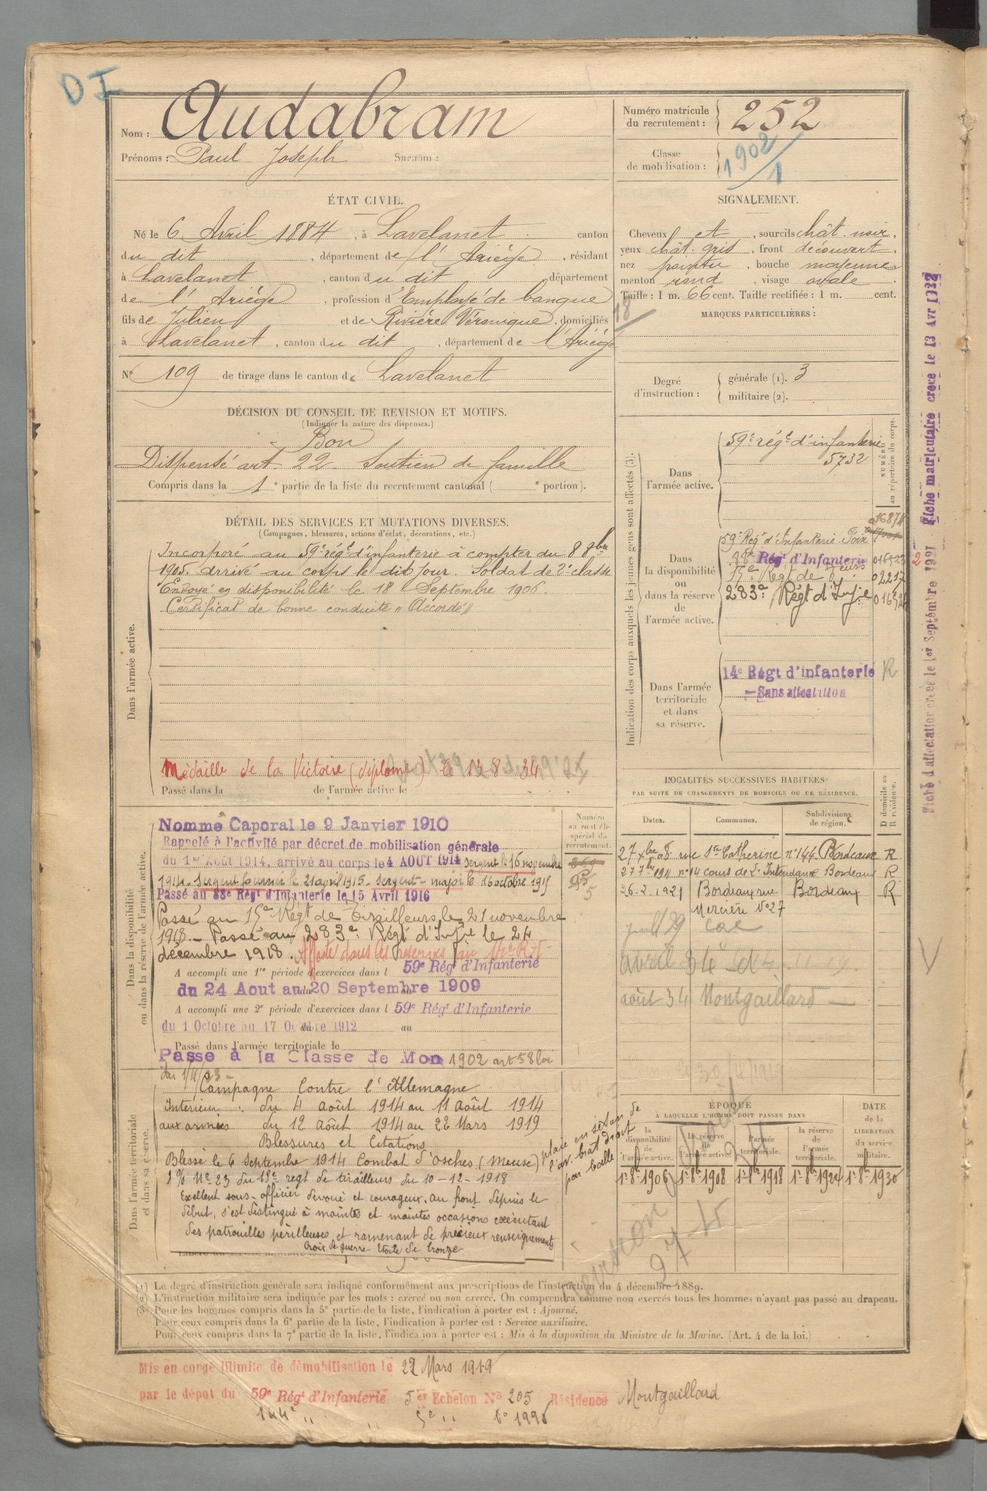 DI
Nom : Audabram
Prénoms : Paul Joseph Surnom :
Numéro matricule du recrutement : 252
Classe de mobilisation : 1902/1
ÉTAT CIVIL.
Né le 6 Avril 1884, à Lavelanet canton
du dit, département de l'Ariège, résidant
à Lavelanet, canton du dit département
de l'Ariège, profession d'Employé de banque
fils de Julien et de Rivière Véronique, domiciliés
à Lavelanet, canton du dit, département de l'Ariège
N° 109 de tirage dans le canton de Lavelanet
SIGNALEMENT.
Cheveux et, sourcils chât. noir,
yeux chât. gris, front découvert
nez pointu, bouche moyenne
menton rond, visage ovale
Taille : 1 m. 66 cent. Taille rectifiée : 1 m. cent.
18
MARQUES PARTICULIÈRES :
Degré d'instruction : générale (1). 3
militaire (2).
DÉCISION DU CONSEIL DE REVISION ET MOTIFS.
(Indiquer la nature des dispenses.)
Bon
Dispensé art. 22 Soutien de famille
Compris dans la 1e partie de la liste du recrutement cantonal ( e portion).
DÉTAIL DES SERVICES ET MUTATIONS DIVERSES.
(Campagnes, blessures, actions d'éclat, décorations, etc.)
Dans l'armée active.
Incorporé au 59e régt d'infanterie à compter du 8 8bre
1905. arrivé au corps le dit jour. Soldat de 2e classe
Envoyé en disponibilité le 18 Septembre 1906.
Certificat de bonne conduite "Accordé"
Médaille de la Victoire (diplome) 13 8 34
Passé dans la de l'armée active le
Indication des corps auxquels les jeunes gens sont affectés (3).
NUMÉRO au répertoire du corps.
Dans l'armée active.
59e régt d'infanterie
5732
Dans la disponibilité ou dans la réserve de l'armée active.
59e Régt d'Infanterie Foix
88e Régt d'Infanterie
15e Régt de
283e Régt d'Infie
Dans l'armée territoriale et dans sa réserve.
14e Régt d'infanterie R
Sans affectation
Dans la disponibilité ou dans la réserve de l'armée active.
Nommé Caporal le 9 Janvier 1910
Rappelé à l'activité par décret de mobilisation générale
du 1er Août 1914, arrivé au corps le 4 AOUT 1914 Sergent le 16 novembre
1914. Sergent fourrier le 21 avril 1915. Sergent-major le 16 octobre 1915
Passé au 88e Régt d'Infanterie le 15 Avril 1916
Passé au 15e Régt de Tirailleurs le 21 novembre
1918. Passé au 283e Régt d'Infie le 24
décembre 1918. Affecté dans les réserves au 14e R.I.
A accompli une 1re période d'exercices dans l 59e Régt d'Infanterie
du 24 Aout au 20 Septembre 1909
A accompli une 2e période d'exercices dans l 59e Régt d'Infanterie
du 1 Octobre au 17 Octobre 1912 au
Passé dans l'armée territoriale le
Passé à la Classe de Mon 1902 art 58 loi
du 1/4/23
Numéro au contrôle spécial du recrutement.
LOCALITÉS SUCCESSIVES HABITÉES
PAR SUITE DE CHANGEMENTS DE DOMICILE OU DE RÉSIDENCE.
Dates. Communes. Subdivisions de région. D domicile ou R résidence.
27 xbre 8 rue Ste Catherine n° 144 Bordeaux R
27 7bre 1911 n° 14 cours de l'Intendance Bordeaux R
26.2.1921 Bordeaux rue Mercière N° 27 Bordeaux R
août 34 Montgaillard
Dans l'armée territoriale et dans sa réserve.
Campagne Contre l'Allemagne
intérieur : du 4 août 1914 au 11 août 1914
aux armées du 12 Août 1914 au 22 Mars 1919
Blessures et Citations
Blessé le 6 Septembre 1914 Combat d'Osches (Meuse) plaie en séton de l'av. bras droit par balle
N° 23 du 15e régt de tirailleurs du 10-12-1918
Excellent sous-officier dévoué et courageux, au front depuis le
début, s'est distingué à maintes et maintes occasions exécutant
des patrouilles périlleuses, et ramenant de précieux renseignements
Croix de guerre Etoile de bronze
ÉPOQUE
À LAQUELLE L'HOMME DOIT PASSER DANS
la disponibilité de l'armée active. la réserve de l'armée active. l'armée territoriale. la réserve de l'armée territoriale. DATE de la LIBÉRATION du service militaire.
1er 8bre 1906 1er 8bre 1908 1er 8bre 1918 1er 8bre 1924 1er 8bre 1930
(1) Le degré d'instruction générale sera indiqué conformément aux prescriptions de l'instruction du 4 décembre 1889.
(2) L'instruction militaire sera indiquée par les mots : exercé ou non exercé. On comprendra comme non exercés tous les hommes n'ayant pas passé au drapeau.
(3) Pour les hommes compris dans la 5e partie de la liste, l'indication à porter est : Ajourné.
Pour ceux compris dans la 6e partie de la liste, l'indication à porter est : Service auxiliaire.
Pour ceux compris dans la 7e partie de la liste, l'indication à porter est : Mis à la disposition du Ministre de la Marine. (Art. 4 de la loi.)
Mis en congé illimité de démobilisation le 22 Mars 1919
par le dépôt du 59e Régt d'Infanterie 5e Echelon N° 205 Résidence Montgaillard
144e " " 5e "
Fiche d'affectation créée le 1er Septembre 1927 Fiche matriculaire créée le 13 Avr 1932